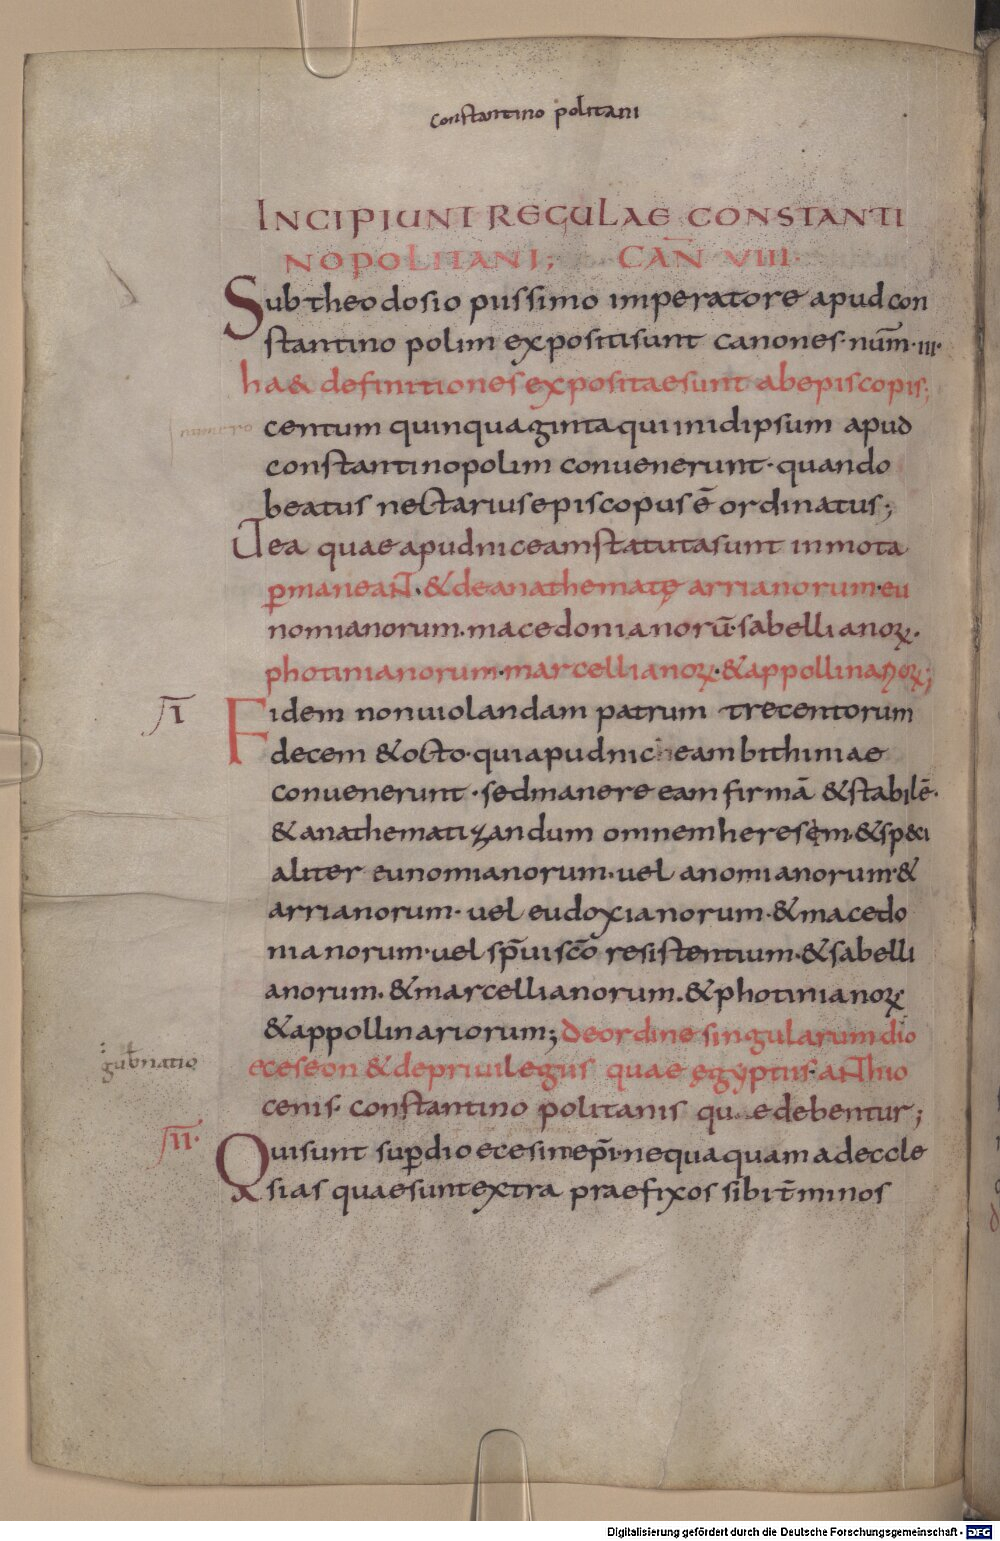 constantino politani
INCIPIUNT REGULAE CONSTANTI
NOPOLITANI; CAN̄ VIII
Sub theodosio piissimo imperatore apud con
stantino polim expositi sunt canones· num̄·III·
ha& definitiones expositae sunt ab episcopis;
numero
centum quinquaginta qui in idipsum apud
constantinopolim convenerunt· quando
beatus nectarius episcopus ē ordinatus;
Ut ea quae apud niceam statuta sunt inmota
p̄maneant· & de anathematę arrianorum· eu
nomianorum· macedonianorū· sabellianoꝝ·
photinianorum· marcellianoꝝ· & appollinarioꝝ;
I
Fidem non uiolandam patrum trecentorum
decem & octo· qui apud niceam bithiniae
conuenerunt· sed manere eam firmā & stabilē·
& anathematizandum omnem heresem· & sp&ci
aliter eunomianorum· uel anomianorum· &
arrianorum· uel eudoxianorum· & macedo
nianorum· uel sp̄ui sc̄o resistentium· & sabelli
anorum· & marcellianorum· & photinianoꝝ
& appollinariorum; de ordine singularum dio
gub̄natio
eceseon & de priuilegiis quae ęgyptiis· anthio
cenis· constantino politanis quae debentur;
II·
Qui sunt sup̄ dioecesin ep̄i· nequaquam ad eccle
sias quae sunt extra praefixos sibi t̄minos
Digitalisierung gefördert durch die Deutsche Forschungsgemeinschaft - DFG